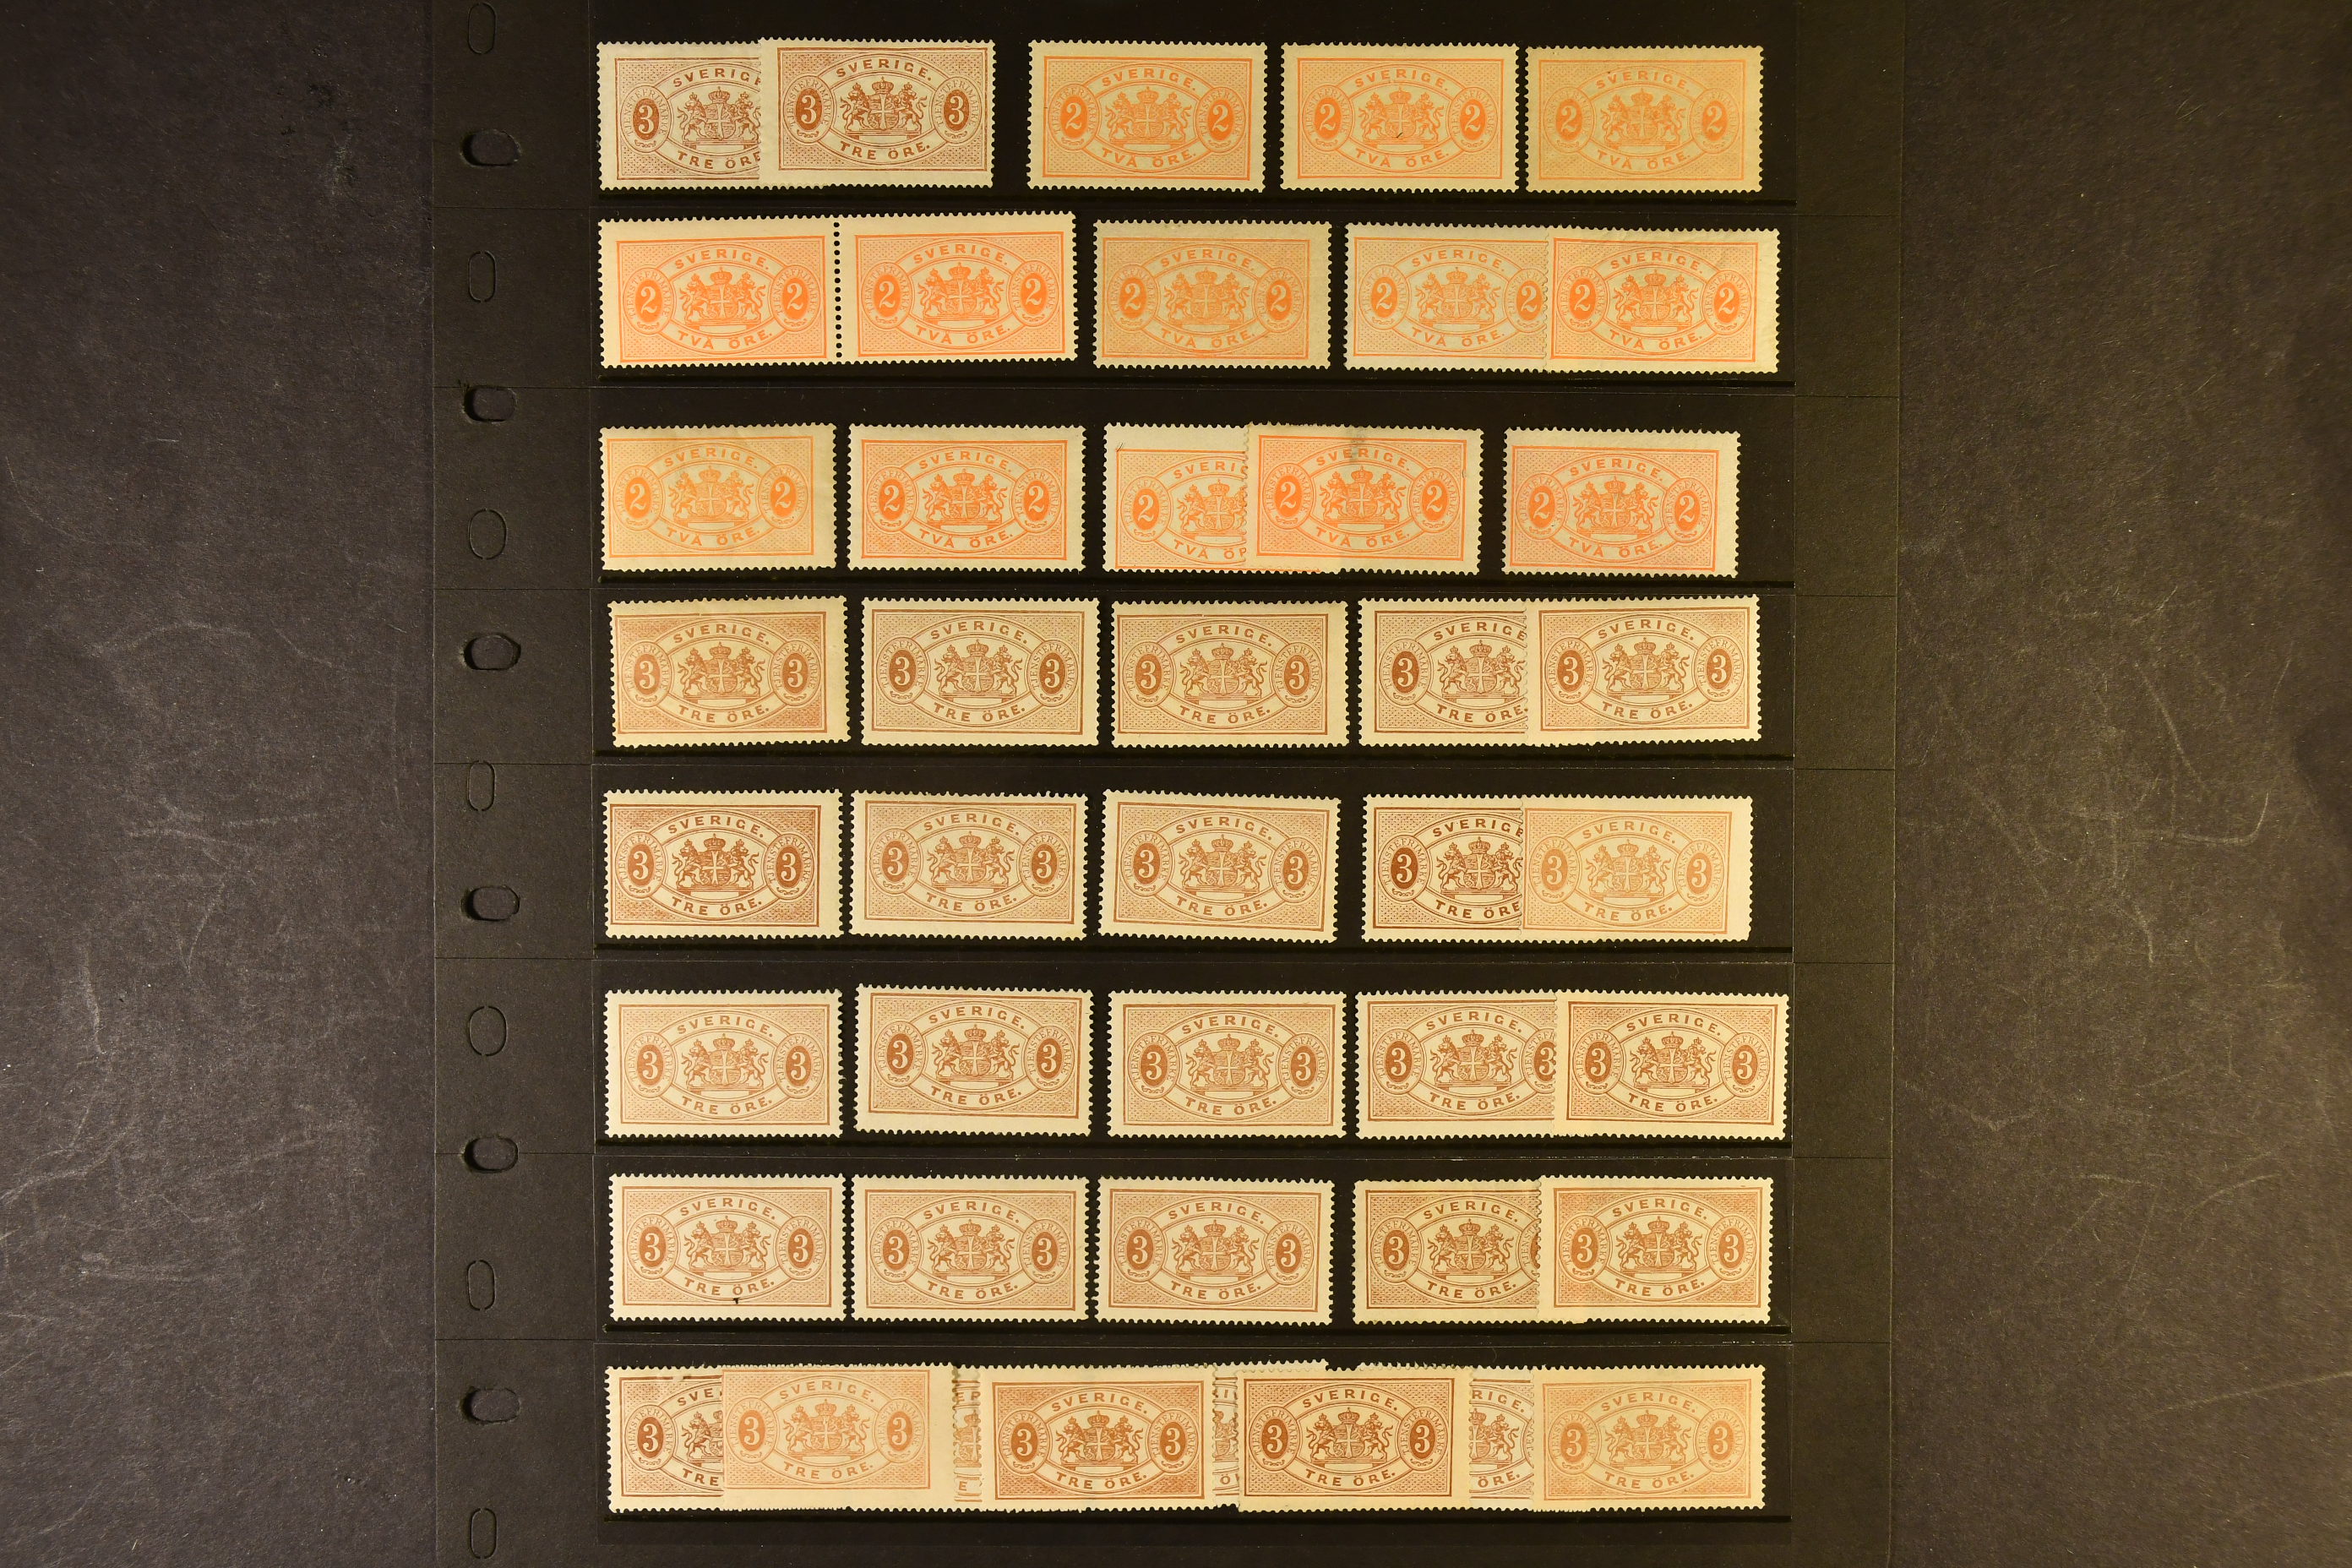 SVERIGE. SVERIGE. SVERIGE. SVERIGE. SVERIGE.
3 3 3 2 2 2 2 2 2
TRE ÖRE TRE ÖRE. TVÅ ÖRE. TVÅ ÖRE. TVÅ ÖRE.
SVERIGE. SVERIGE. SVERIGE. SVERIGE. SVERIGE.
2 2 2 2 2 2 2 2 2 2
TVÅ ÖRE. TVÅ ÖRE. TVÅ ÖRE. TVÅ ÖRE. TVÅ ÖRE.
SVERIGE. SVERIGE. SVERI SVERIGE. SVERIGE.
2 2 2 2 2 2 2 2 2
TVÅ ÖRE. TVÅ ÖRE. TVÅ ÖR TVÅ ÖRE. TVÅ ÖRE.
SVERIGE. SVERIGE. SVERIGE. SVERIGE SVERIGE.
3 3 3 3 3 3 3 3 3
TRE ÖRE. TRE ÖRE. TRE ÖRE. TRE ÖRE. TRE ÖRE.
SVERIGE. SVERIGE. SVERIGE. SVERIGE SVERIGE.
3 3 3 3 3 3 3 3 3
TRE ÖRE. TRE ÖRE. TRE ÖRE. TRE ÖRE TRE ÖRE.
SVERIGE. SVERIGE. SVERIGE. SVERIGE. SVERIGE.
3 3 3 3 3 3 3 3 3 3
TRE ÖRE. TRE ÖRE. TRE ÖRE. TRE ÖRE. TRE ÖRE.
SVERIGE. SVERIGE. SVERIGE. SVERIGE. SVERIGE.
3 3 3 3 3 3 3 3 3
TRE ÖRE. TRE ÖRE. TRE ÖRE. TRE ÖRE. TRE ÖRE.
SVE SVERIGE. SVERIGE. SVERIGE. RIGE. SVERIGE.
3 3 3 3 3 3 3 3 3
TRE TRE ÖRE. E TRE ÖRE. TRE ÖRE. ÖRE. TRE ÖRE.